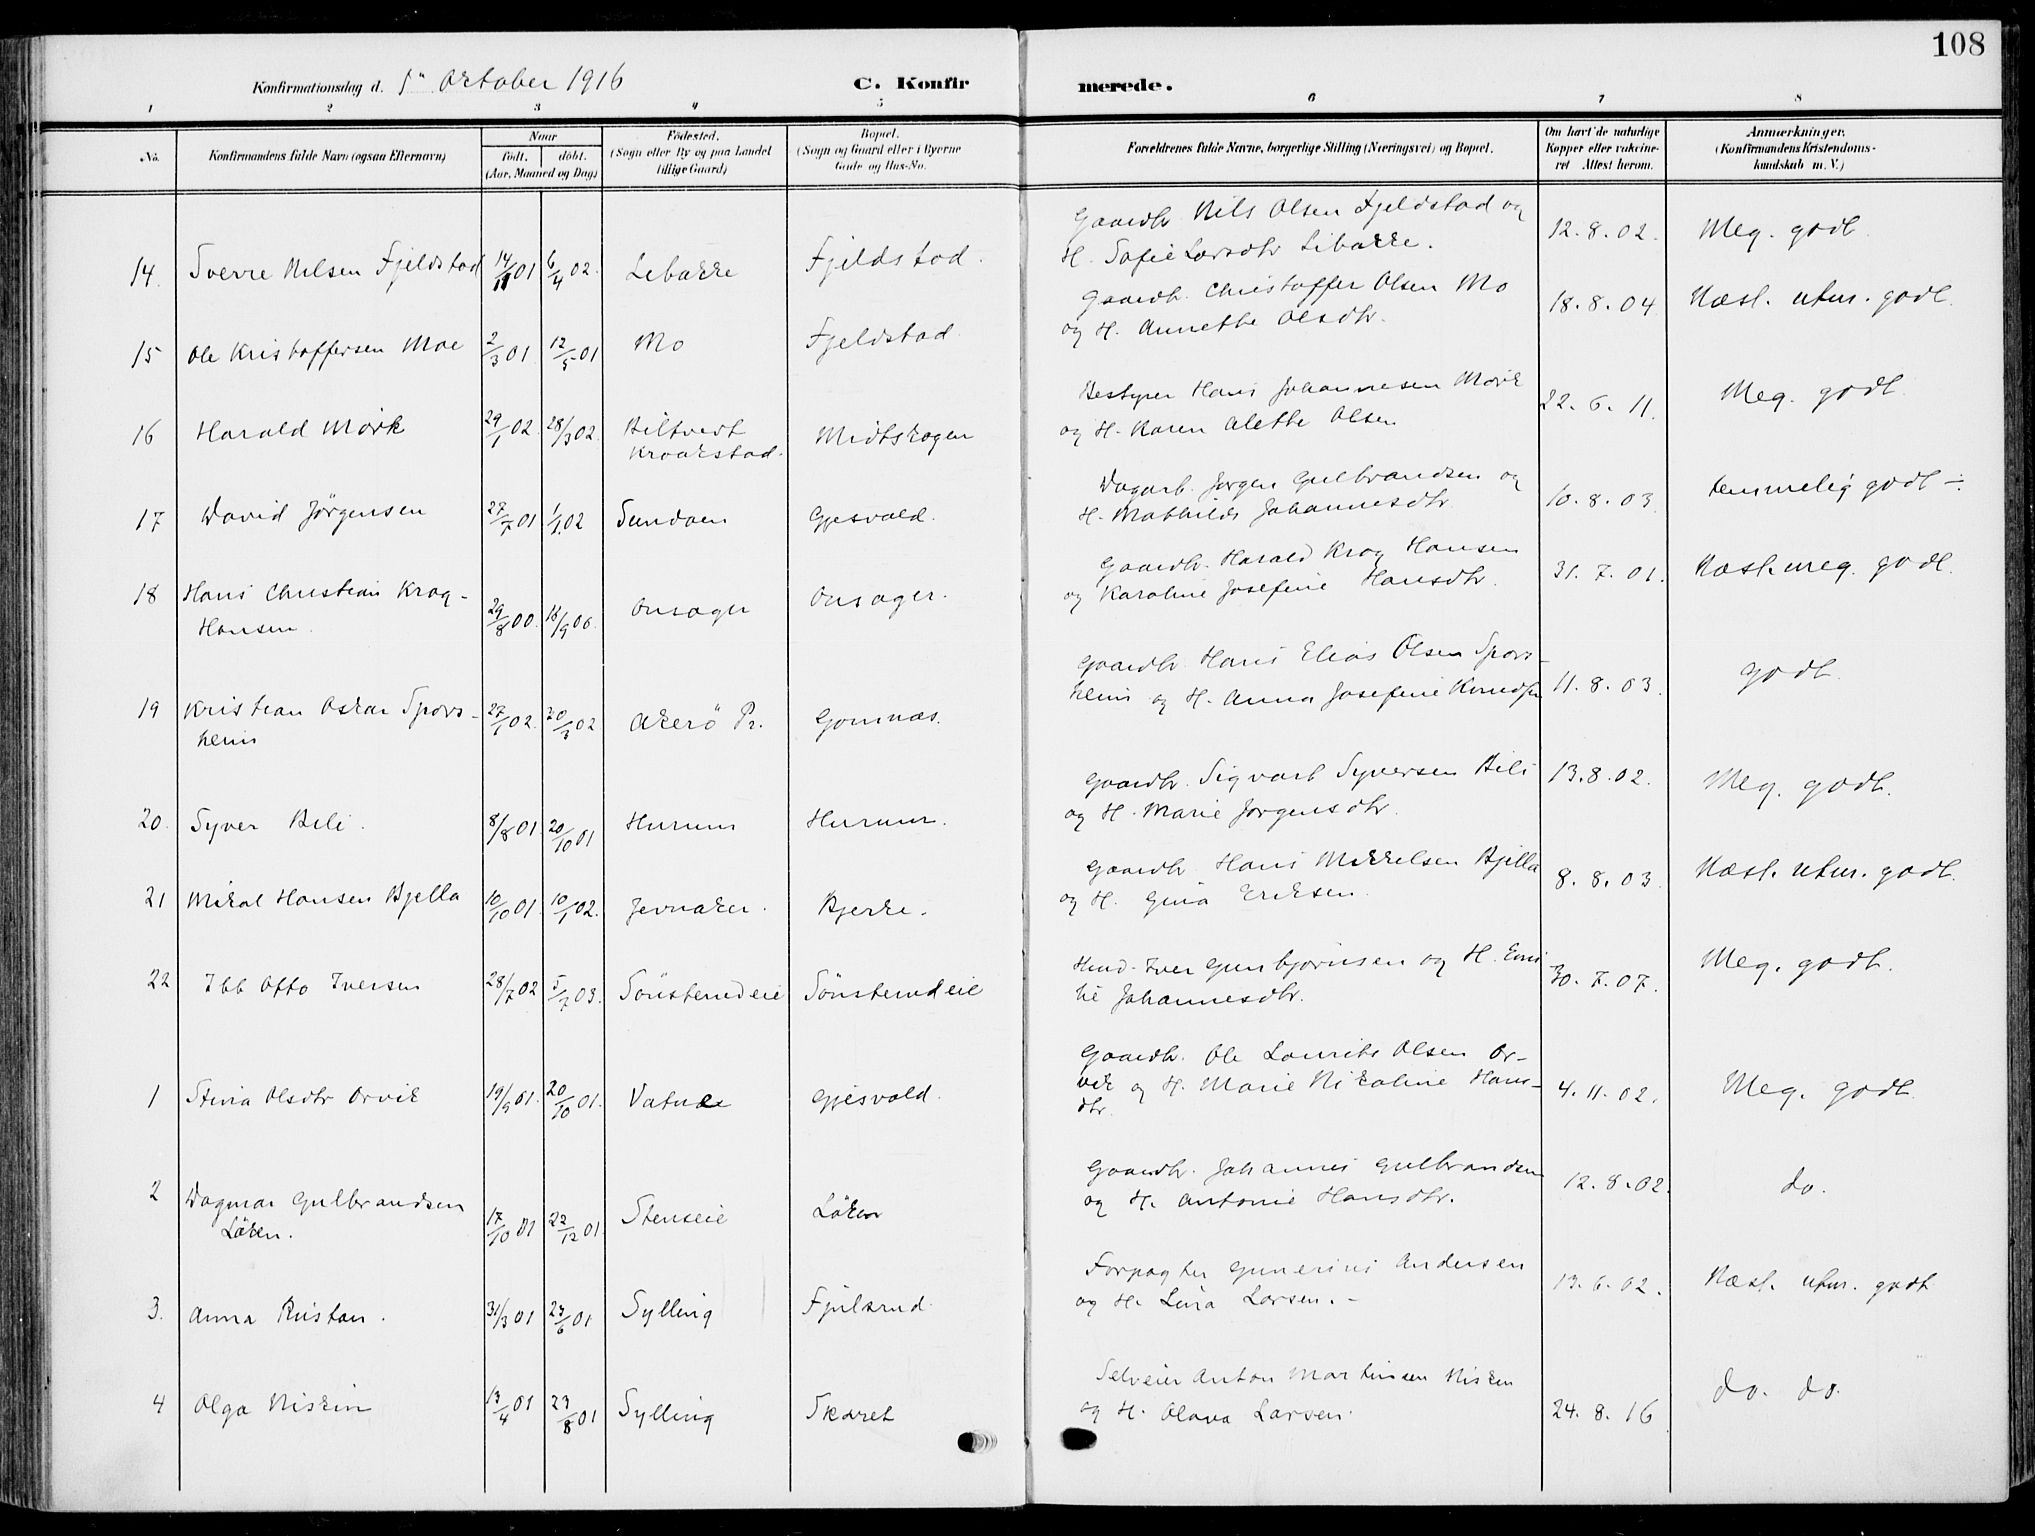 108
Konfirmationsdag d. 1ᵗᵉ October 1916
C. Konfirmerede.
1 2 3 4 5 6 7 8
No.
Konfirmandens fulde Navn (ogsaa Efternavn)
Naar
födt. döbt.
(Aar, Maaned og Dag)
Födested.
(Sogn eller By og paa Landet
tillige Gaard)
Bopæl.
(Sogn og Gaard eller i Byerne
Gade og Hus-No.
Forældrenes fulde Navne, borgerlige Stilling (Næringsvei) og Bopæl.
Om havt de naturlige
Kopper eller vakcine-
ret Attest herom.
Anmærkninger.
(Konfirmandens Kristendoms-
kundskab m. V.)
Gaardbr. Nils Olsen Fjeldstad og
H. Sofie Larsdtr Libakke.
14. Sverre Nilsen Fjeldstad 14/11 01 6/4 02. Lebakke Fjeldstad. 12.8.02. Meg. godt.
Gaardbr. Christoffer Olsen Mo
og H. Annette Olsdtr.
15 Ole Kristoffersen Moe 2/3 01 12/5 01 Mo Fjeldstad. 18.8.04 Næst. utm. godt.
Bestyrer Hans Johannesen Mørk
og H. Karen Alette Olsen
16 Harald Mörk 29/1 02. 28/3 02. Biltvedt
Kraakstad. Midtskogen 22.6.11. Meg. godt.
Dagarb. Jørgen Gulbrandsen og
H. Mathilde Johannesdtr.
17 David Jörgensen 27/7 01 1/1 02 Sundoen Gjesvold. 10.8.03. temmelig godt ÷.
Gaardbr. Harald Krag Hansen
og Karoline Josefine Hansdtr.
18 Hans Christian Krag-
Hansen. 29/8 00. 16/9 00. Onsager Onsager. 31.7.01. Næst. meg. godt.
Gaardbr. Hans Elias Olsen Spors-
heim og H. Anna Josefine Knudsen
19 Kristian Oskar Spors-
heim 27/1 02. 20/3 02 Akerö Pr. Gomnæs. 11.8.03. godt.
Gaardbr. Sigvart Syversen Bili
og H. Marie Jørgensdtr.
20. Syver Bili. 8/8 01 20/10 01 Hurum Hurum. 13.8.02. Meg. godt.
Gaardbr. Hans Mikkelsen Bjella
og H. Gina Eriksen.
21 Mikal Hansen Bjella 10/10 01. 10/1 02. Jevnaker. Bjerke. 8.8.03. Næst. utm. godt.
Husmd. Iver Gunbjørnsen og H. Emi
lie Johannesdtr.
22 Ibb Otto Iversen 28/7 02 5/7 03. Sönsterudeie Sönsterudeie 30.7.07. Meg. godt.
Gaardbr. Ole Laurits Olsen Or-
vik og H. Marie Nikoline Hans-
dtr.
1 Stina Olsdtr Orvik 19/9 01. 20/10 01. Gjesvold. 4.11.02. Meg. godt.
Gaardbr. Johannes Gulbrandsen
og H. Antonie Hansdtr.
2 Dagmar Gulbrandsen
Löken. 17/10 01 22/12 01. Stenseie Löken 12.8.02. do.
Forpagter Gunerius Andersen
og H. Lina Larsen. -
3. Anna Rustan. 31/3 01 23/6 01 Sylling Fjulsrud. 13.6.02. Næst. utm. godt
Selveier Anton Martinsen Niskin
og H. Olava Larsen.
4 Olga Niskin 13/4 01 23/8 01 Sylling Skaret 24.8.16 do. do.